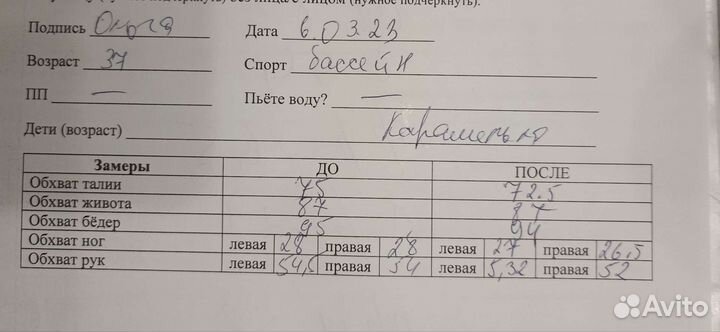 без лица с лицом (нужное подчеркнуть).
Подпись Ольга Дата 6.03.23
Возраст 37 Спорт бассейн
ПП — Пьёте воду? —
Дети (возраст)
Замеры ДО ПОСЛЕ
Обхват талии 75 72.5
Обхват живота 87 87
Обхват бёдер 95 94
Обхват ног левая 28 правая 28 левая 27 правая 26,5
Обхват рук левая 54,5 правая 54 левая 5,32 правая 52
Avito